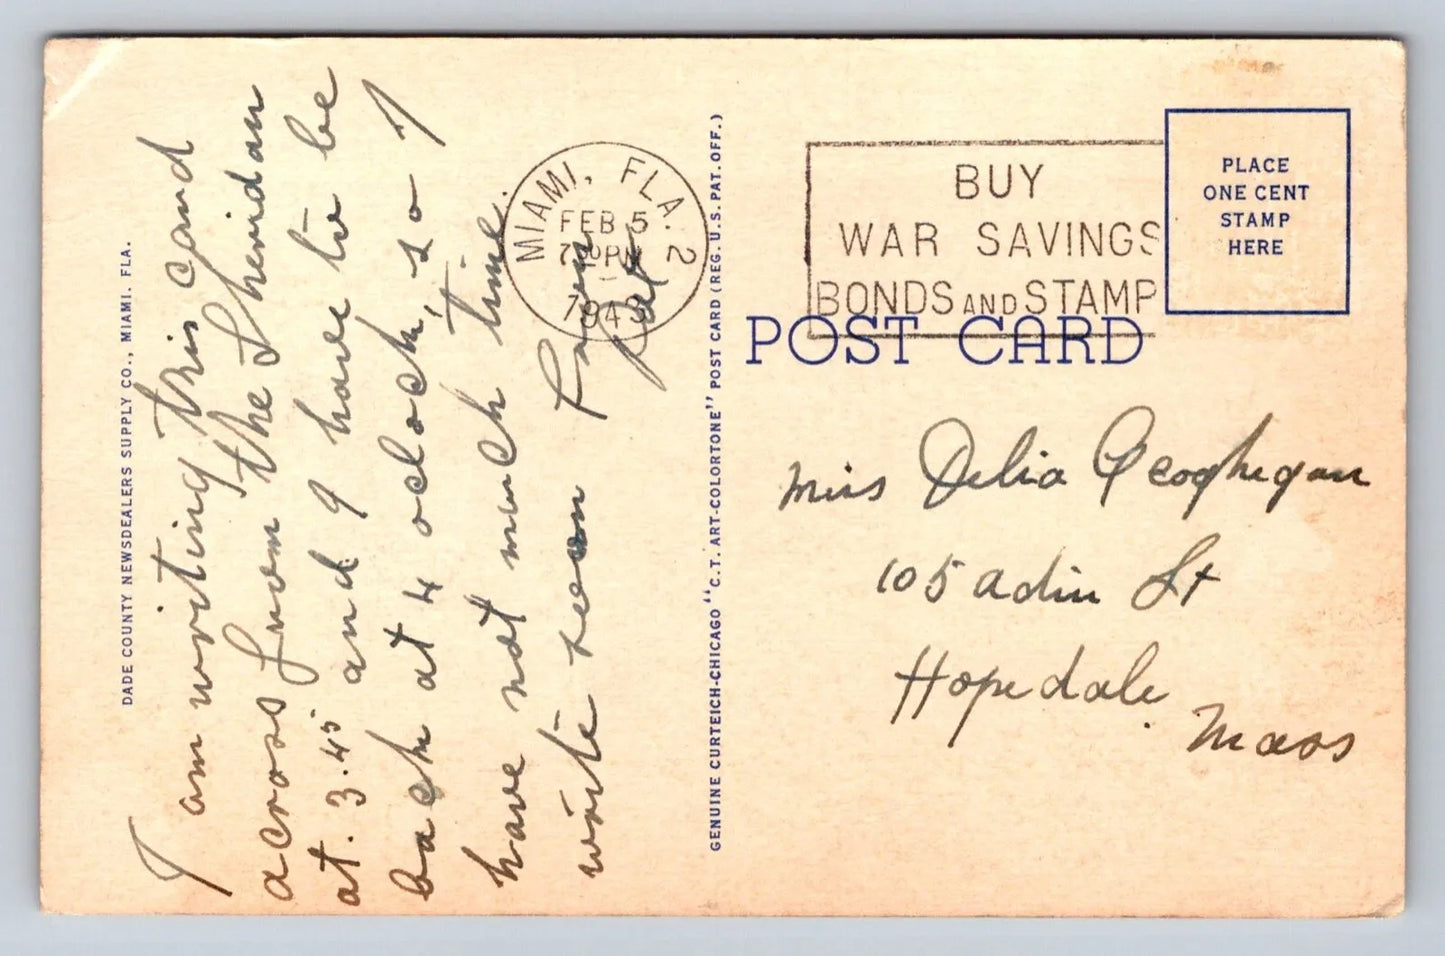 DADE COUNTY NEWSDEALERS SUPPLY CO., MIAMI. FLA.
I am writing this card
across from the Sheridan
at. 3.45 and I have to be
back at 4 oclock, so I
have not much time.
write soon
Pat
MIAMI, FLA.
FEB 5
7 30 PM
1943
2
GENUINE CURTEICH-CHICAGO "C.T. ART-COLORTONE" POST CARD (REG. U.S. PAT. OFF.)
BUY
WAR SAVINGS
BONDS AND STAMP
PLACE
ONE CENT
STAMP
HERE
POST CARD
Miss Delia Geoghegan
105 adin St
Hopedale
Mass